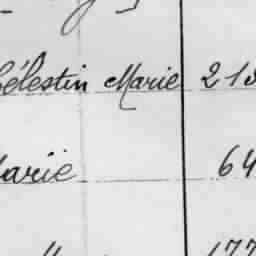 Célestin Marie 218
Marie 64
" 177